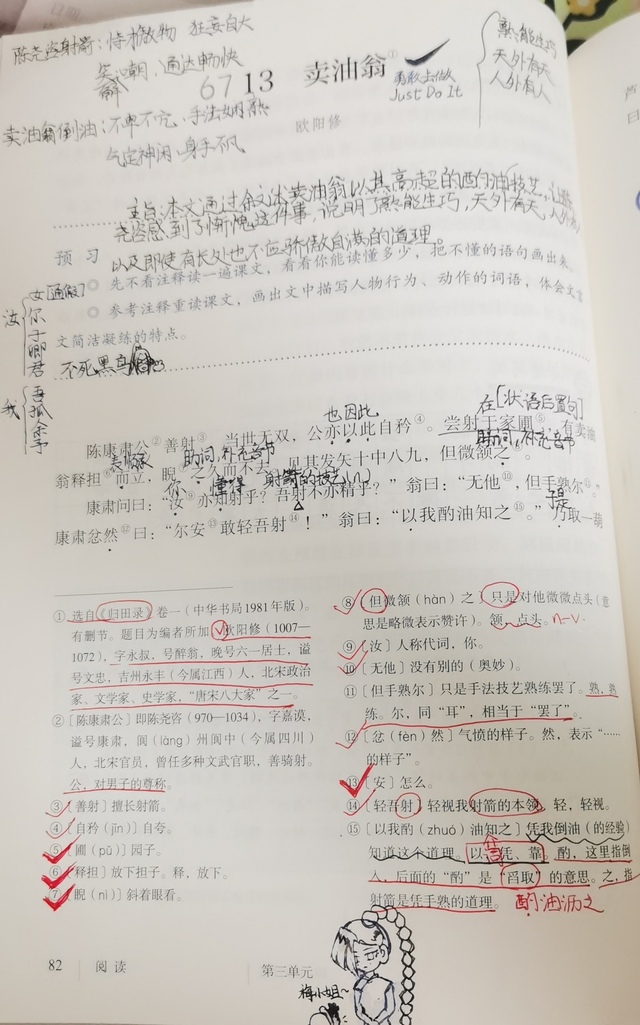 陈尧咨射箭：恃才放物 狂妄自大
笑
解
嘲，通达畅快
67
13 卖油翁①
勇敢去做
Just Do It
熟能生巧
天外有天
人外有人
卖油翁倒油：不卑不亢、手法娴熟
气定神闲 身手不凡
欧阳修
主旨：本文通过叙述卖油翁以其高超的酌油技艺，让陈
尧咨感到了惭愧这件事，说明了熟能生巧，天外有天，人外有人
以及即使有长处也不应骄傲自满的道理。
预 习
◎ 先不看注释读一遍课文，看看你能读懂多少，把不懂的语句画出来。
◎ 参考注释重读课文，画出文中描写人物行为、动作的词语，体会文言
文简洁凝练的特点。
汝
女[通假]
尔
子
卿
君
不死黑鸟
我
吾
孤
余
予
也因此
在[状语后置句]
陈康肃公②善射③，当世无双，公亦以此自矜④。尝射于家圃⑤，有卖油
表修饰
助词，补充音节
助词，补充音节
翁释担⑥而立，睨⑦之久而不去。见其发矢十中八九，但微颔⑧之。
你
懂得
射箭的技艺(n)
康肃问曰：“汝⑨亦知射乎？吾射不亦精乎？”翁曰：“无他⑩，但手熟尔⑪。”
于是
康肃忿然⑫曰：“尔安⑬敢轻吾射⑭！”翁曰：“以我酌油知之⑮。”乃取一葫
① 选自《归田录》卷一（中华书局1981年版）。
有删节。题目为编者所加。欧阳修（1007—
1072），字永叔，号醉翁，晚号六一居士，谥
号文忠，吉州永丰（今属江西）人，北宋政治
家、文学家、史学家，“唐宋八大家”之一。
②〔陈康肃公〕即陈尧咨（970—1034），字嘉谟，
谥号康肃，阆（làng）州阆中（今属四川）
人，北宋官员，曾任多种文武官职，善骑射。
公，对男子的尊称。
③〔善射〕擅长射箭。
④〔自矜（jīn）〕自夸。
⑤〔圃（pǔ）〕园子。
⑥〔释担〕放下担子。释，放下。
⑦〔睨（nì）〕斜着眼看。
⑧〔但微颔（hàn）之〕只是对他微微点头（意
思是略微表示赞许）。颔，点头。n=v.
⑨〔汝〕人称代词，你。
⑩〔无他〕没有别的（奥妙）。
⑪〔但手熟尔〕只是手法技艺熟练罢了。熟，熟
练。尔，同“耳”，相当于“罢了”。
⑫〔忿（fèn）然〕气愤的样子。然，表示“……
的样子”。
⑬〔安〕怎么。
⑭〔轻吾射〕轻视我射箭的本领。轻，轻视。
⑮〔以我酌（zhuó）油知之〕凭我倒油（的经验）
知道这个道理。以，凭、靠。酌，这里指倒
入，后面的“酌”是“舀取”的意思。之，指
射箭是凭手熟的道理。
酌油沥之
梅小姐~
82 阅读 第三单元